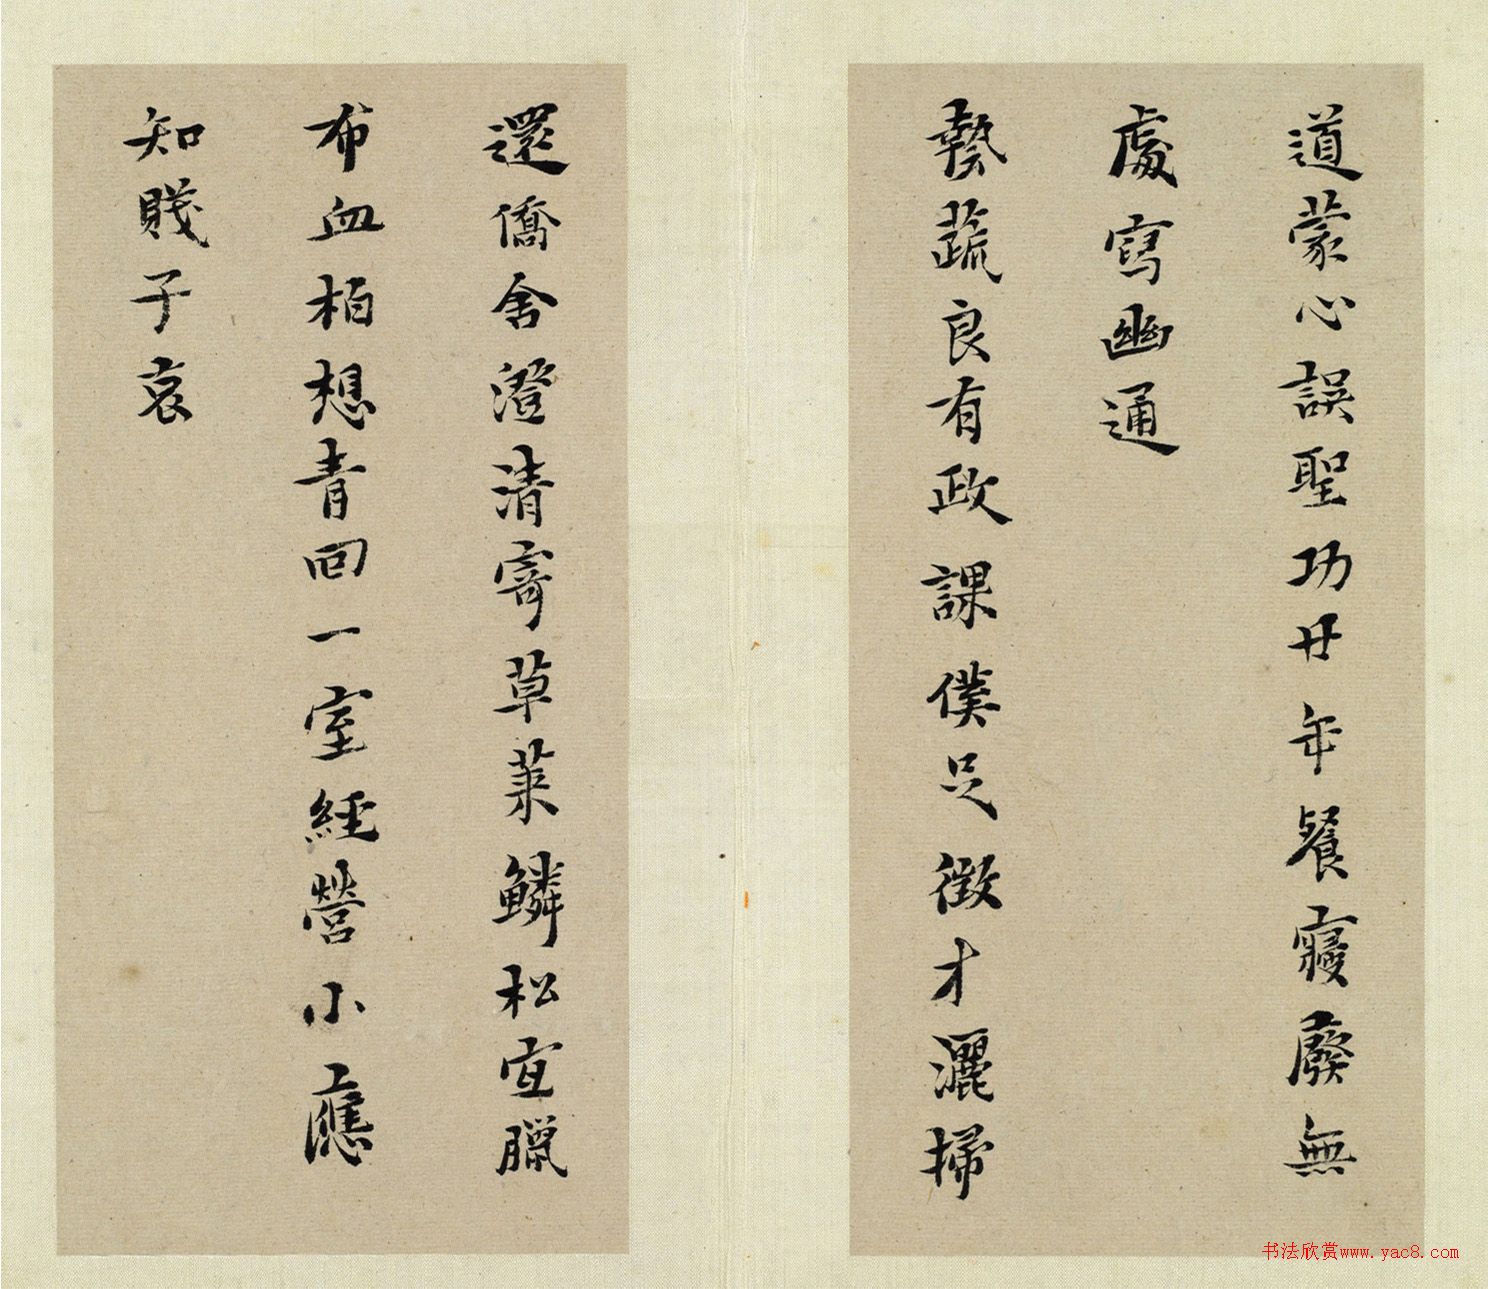 道蒙心誤聖功廿年餐寢廢無
處寫幽通
蓺蔬良有政課僕足徵才灑掃
還僑舍澄清寄草萊鱗松宜臘
布血柏想青回一室經營小應
知賤子哀
书法欣赏www.yac8.com